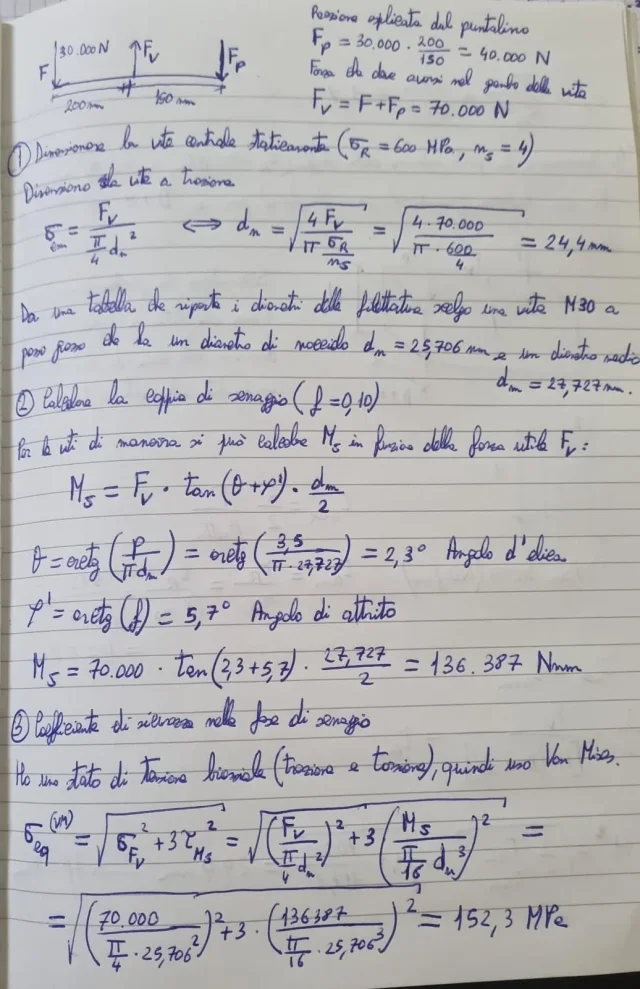 Reazione esplicata dal puntalino
30.000 N
F
F_v
F_p
200 mm
150 mm
F_p = 30.000 · 200/150 = 40.000 N
Forza che deve aversi nel gambo della vite
F_v = F + F_p = 70.000 N
① Dimensionare la vite centrale staticamente (σ_R = 600 MPa, n_s = 4)
Dimensiono la vite a trazione
σ_am = F_v / (π/4 d_n²) ⟺ d_n = √(4 F_v / (π σ_R/n_s)) = √(4 · 70.000 / (π · 600/4)) = 24,4 mm
Da una tabella che riporta i diametri delle filettature scelgo una vite M30 a
passo grosso che ha un diametro di nocciolo d_n = 25,706 mm e un diametro medio
d_m = 27,727 mm.
② Calcolare la coppia di serraggio (f = 0,10)
Per le viti di manovra si può calcolare M_s in funzione della forza utile F_v:
M_s = F_v · tan(θ + φ') · d_m/2
θ = arctg(p/(π d_m)) = arctg(3,5/(π · 27,727)) = 2,3° Angolo d'elica
φ' = arctg(f) = 5,7° Angolo di attrito
M_s = 70.000 · tan(2,3 + 5,7) · 27,727/2 = 136.387 Nmm
③ Coefficiente di sicurezza nella fase di serraggio
Ho uno stato di tensione biassiale (trazione e torsione), quindi uso Von Mises.
σ_eq^(VM) = √(σ_Fv² + 3τ_Ms²) = √((F_v / (π/4 d_n²))² + 3 (M_s / (π/16 d_n³))²) =
= √((70.000 / (π/4 · 25,706²))² + 3 · (136387 / (π/16 · 25,706³))²) = 152,3 MPa